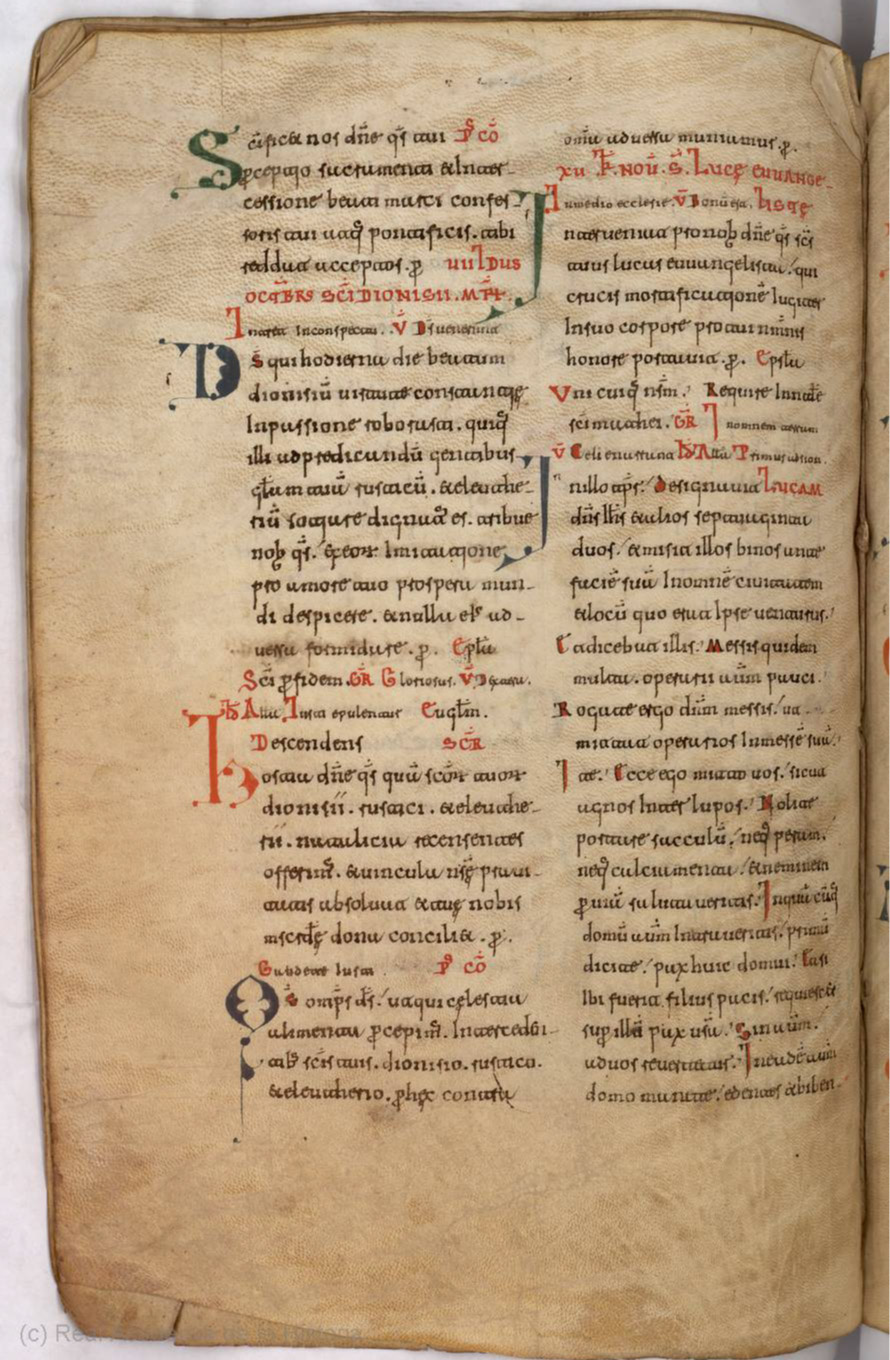 Scifica nos dñe qs tui P̄ CŌ
pceptio sacramenti & Inter-
cessione beati marci confes-
soris tui atq pontificis. tibi
reddat acceptos. p̱ VII IDUS
OCTBRS SC̄I DIONISII. M̄R̄
Intret Inconspectu. V̄ D̄s uenerunt
D̄s qui hodierna die beatum
dionisiū uirtute constantię
Inpassione roborasti. quiq
illi ad predicandū gentibus
glam tuā rusticū. & eleuthe-
riū sociare dignat' es. tribue
nob qs. & eor Imitatione
pro amore tuo prospera mun-
di despicere. & nulla ei' ad-
uersa formidare. p̱. Epla
Sci p fidem. GR Gloriosus. V̄ Dextera.
Alla Iusti epulentur Euglm.
Descendens SCR
Hostia dñe qs quā scor tuor
dionisii. rustici. & eleuthe-
rii. natalicia recensentes
offerim. & uincula nrę praui-
tatis absoluat & tuę nobis
mscdę dona conciliet. p̱.
Gaudete Iusti. P̄ CŌ
Qs omps ds. ut qui cęlestia
alimenta pcepim. Intercedn-
tib scis tuis. dionisio. rustico.
& eleutherio. p hęc contra
omia aduersa muniamur. p̱.
XV K. NOV. S. LUCĘ EUUANGE-
In medio ecclesie. V̄ Bonū est. LISTĘ
Interueniat pro nob dñe qs scs
tuus lucas euuangelista. qui
crucis mortificationē Iugiter
Insuo corpore pro tui nminis
honore portauit. p̱. Epla
Vni cuiq nrm. Require Innale
sci mathei. GR In omnem terram
V̄ Celi enarrant Alla Primus ad sion.
In illo tps. Designauit LUCAM
dñs Ihs & alios septuaginta
duos. & misit illos binos ante
faciē suā Inomnē ciuitatem
& locū quo erat Ipse uenturus.
Et dicebat illis. Messis quidem
multa. operarii autm pauci.
Rogate ergo dñm messis. ut
mittat operarios Inmessē suā.
Ite. Ecce ego mitto uos. sicut
agnos Inter lupos. Nolite
portare sacculū. neq peram.
neq calciamenta. & neminem
p uiā salutaueritis. In quā cūq
domū autm Intraueritis. primū
dicite. pax huic domui. Et si
Ibi fuerit filius pacis. requiescet
sup illā pax ura. Sin autm.
ad uos reuertetur. In eadē autm
domo manete. edentes & biben-